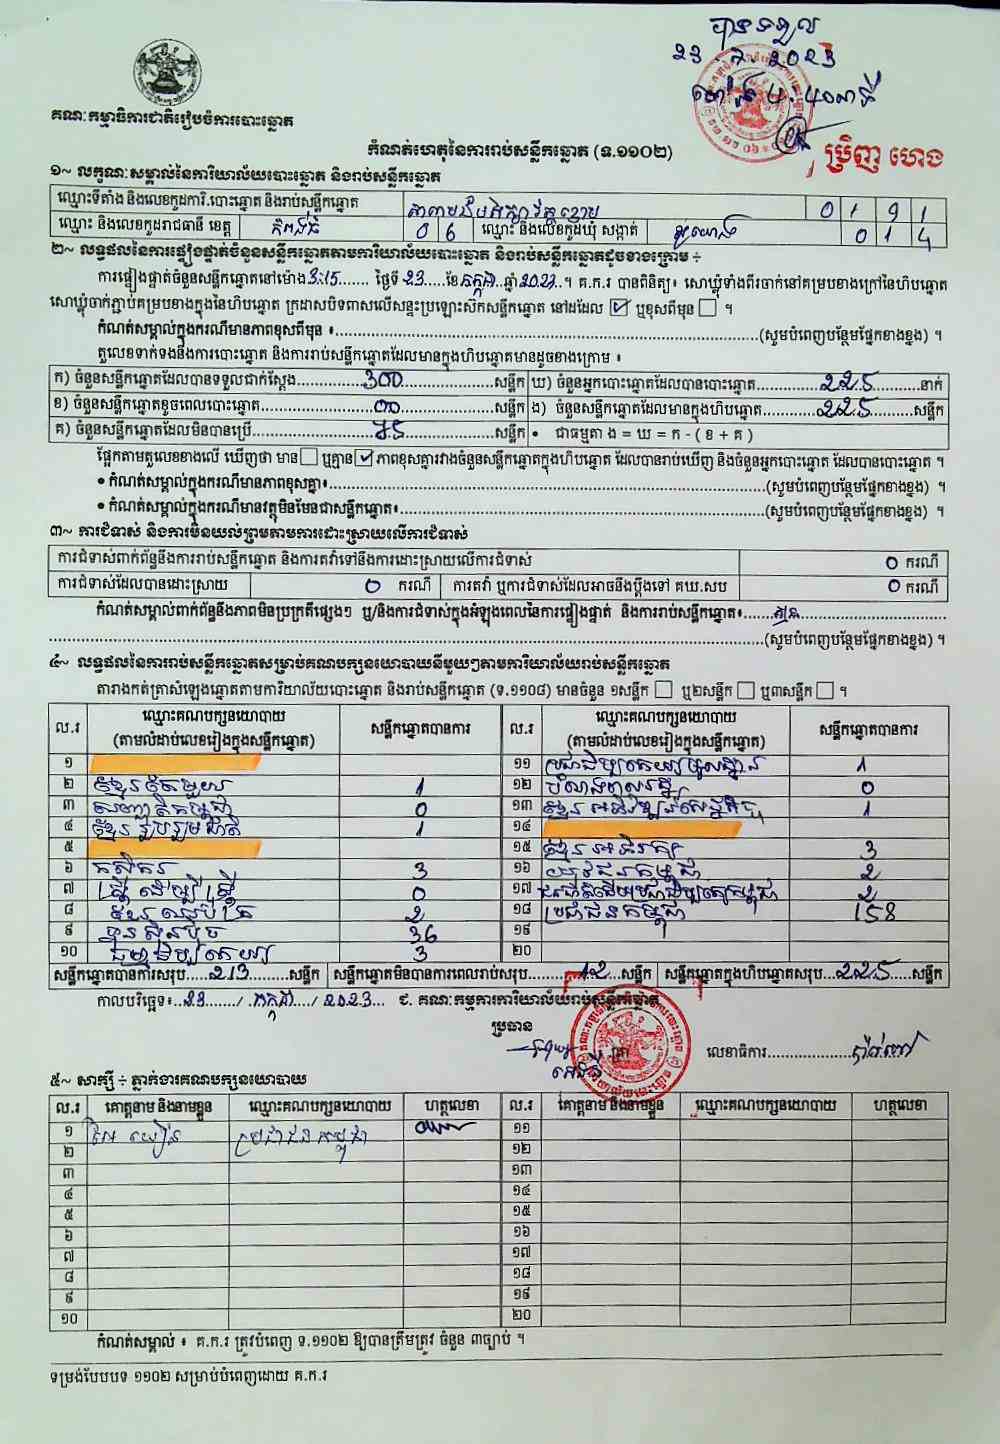 បានទទួល
23 7 2023
ម៉ោង ៤:៤០នាទី
ប្រិញ ហេង
គណៈកម្មាធិការជាតិរៀបចំការបោះឆ្នោត
កំណត់ហេតុនៃការរាប់សន្លឹកឆ្នោត (ទ.១១០២)
១~ លក្ខណៈសម្គាល់នៃការិយាល័យបោះឆ្នោត និងរាប់សន្លឹកឆ្នោត
ឈ្មោះទីតាំង និងលេខកូដការិ.បោះឆ្នោត និងរាប់សន្លឹកឆ្នោត 0 1 9 1
ឈ្មោះ និងលេខកូដរាជធានី ខេត្ត កំពង់ធំ 0 6 ឈ្មោះ និងលេខកូដឃុំ សង្កាត់ 0 1 4
២~ លទ្ធផលនៃការផ្ទៀងផ្ទាត់ចំនួនសន្លឹកឆ្នោតតាមការិយាល័យបោះឆ្នោត និងរាប់សន្លឹកឆ្នោតដូចខាងក្រោម ÷
ការផ្ទៀងផ្ទាត់ចំនួនសន្លឹកឆ្នោតនៅម៉ោង 3:15 ថ្ងៃទី 23 ខែ កក្កដា ឆ្នាំ 2023 ។ គ.ក.រ បានពិនិត្យ៖ សោឃ្លុំទាំងពីរចាក់នៅគម្របខាងក្រៅនៃហិបឆ្នោត
សោឃ្លុំចាក់ភ្ជាប់គម្របខាងក្នុងនៃហិបឆ្នោត ក្រដាសបិទពាសលើសន្ទះប្រឡោះស៊កសន្លឹកឆ្នោត នៅដដែល ☑ ឬខុសពីមុន ☐ ។
កំណត់សម្គាល់ក្នុងករណីមានភាពខុសពីមុន ៖ (សូមបំពេញបន្ថែមផ្នែកខាងខ្នង) ។
តួលេខទាក់ទងនឹងការបោះឆ្នោត និងការរាប់សន្លឹកឆ្នោតដែលមានក្នុងហិបឆ្នោតមានដូចខាងក្រោម ៖
ក) ចំនួនសន្លឹកឆ្នោតដែលបានទទួលជាក់ស្តែង 300 សន្លឹក ឃ) ចំនួនអ្នកបោះឆ្នោតដែលបានបោះឆ្នោត 225 នាក់
ខ) ចំនួនសន្លឹកឆ្នោតខូចពេលបោះឆ្នោត 00 សន្លឹក ង) ចំនួនសន្លឹកឆ្នោតដែលមានក្នុងហិបឆ្នោត 225 សន្លឹក
គ) ចំនួនសន្លឹកឆ្នោតដែលមិនបានប្រើ 75 សន្លឹក • ជាធម្មតា ង = ឃ = ក - ( ខ + គ )
ផ្អែកតាមតួលេខខាងលើ ឃើញថា មាន ☐ ឬគ្មាន ☑ ភាពខុសគ្នារវាងចំនួនសន្លឹកឆ្នោតក្នុងហិបឆ្នោត ដែលបានរាប់ឃើញ និងចំនួនអ្នកបោះឆ្នោត ដែលបានបោះឆ្នោត ។
• កំណត់សម្គាល់ក្នុងករណីមានភាពខុសគ្នា៖ (សូមបំពេញបន្ថែមផ្នែកខាងខ្នង) ។
• កំណត់សម្គាល់ក្នុងករណីមានវត្ថុមិនមែនជាសន្លឹកឆ្នោត៖ (សូមបំពេញបន្ថែមផ្នែកខាងខ្នង) ។
៣~ ការជំទាស់ និងការមិនយល់ព្រមតាមការដោះស្រាយលើការជំទាស់
ការជំទាស់ពាក់ព័ន្ធនឹងការរាប់សន្លឹកឆ្នោត និងការតវ៉ាទៅនឹងការដោះស្រាយលើការជំទាស់ 0 ករណី
ការជំទាស់ដែលបានដោះស្រាយ 0 ករណី ការតវ៉ា ឬការជំទាស់ដែលអាចនឹងប្តឹងទៅ គឃ.សប 0 ករណី
កំណត់សម្គាល់ពាក់ព័ន្ធនឹងភាពមិនប្រក្រតីផ្សេងៗ ឬ/និងការជំទាស់ក្នុងអំឡុងពេលនៃការផ្ទៀងផ្ទាត់ និងការរាប់សន្លឹកឆ្នោត៖ គ្មាន
(សូមបំពេញបន្ថែមផ្នែកខាងខ្នង) ។
៤~ លទ្ធផលនៃការរាប់សន្លឹកឆ្នោតសម្រាប់គណបក្សនយោបាយនីមួយៗតាមការិយាល័យរាប់សន្លឹកឆ្នោត
តារាងកត់ត្រាសំឡេងឆ្នោតតាមការិយាល័យបោះឆ្នោត និងរាប់សន្លឹកឆ្នោត (ទ.១១០៨) មានចំនួន ១សន្លឹក ☐ ឬ២សន្លឹក ☐ ឬ៣សន្លឹក ☐ ។
ល.រ ឈ្មោះគណបក្សនយោបាយ សន្លឹកឆ្នោតបានការ ល.រ ឈ្មោះគណបក្សនយោបាយ សន្លឹកឆ្នោតបានការ
(តាមលំដាប់លេខរៀងក្នុងសន្លឹកឆ្នោត) (តាមលំដាប់លេខរៀងក្នុងសន្លឹកឆ្នោត)
១ ១១ ប្រជាធិបតេយ្យមូលដ្ឋាន 1
២ ខ្មែររួបរួម 1 ១២ 0
៣ សញ្ជាតិកម្ពុជា 0 ១៣ ខ្មែរអភិវឌ្ឍន៍សេដ្ឋកិច្ច 1
៤ ខ្មែររួបរួមជាតិ 1 ១៤
៥ ១៥ ខ្មែរអភិរក្ស 3
៦ កសិករ 3 ១៦ យុវជនកម្ពុជា 2
៧ ស្ត្រីដើម្បីស្ត្រី 0 ១៧ 2
៨ 2 ១៨ ប្រជាជនកម្ពុជា 158
៩ ហ្វ៊ុនស៊ិនប៉ិច 36 ១៩
១០ ធម្មាធិបតេយ្យ 3 ២០
សន្លឹកឆ្នោតបានការសរុប 213 សន្លឹក សន្លឹកឆ្នោតមិនបានការពេលរាប់សរុប 12 សន្លឹក សន្លឹកឆ្នោតក្នុងហិបឆ្នោតសរុប 225 សន្លឹក
កាលបរិច្ឆេទ៖ 23 / កក្កដា / 2023 ជ. គណៈកម្មការការិយាល័យរាប់សន្លឹកឆ្នោត
ប្រធាន
លេខាធិការ
៥~ សាក្សី ÷ ភ្នាក់ងារគណបក្សនយោបាយ
ល.រ គោត្តនាម និងនាមខ្លួន ឈ្មោះគណបក្សនយោបាយ ហត្ថលេខា ល.រ គោត្តនាម និងនាមខ្លួន ឈ្មោះគណបក្សនយោបាយ ហត្ថលេខា
១ ប្រជាជនកម្ពុជា ១១
២ ១២
៣ ១៣
៤ ១៤
៥ ១៥
៦ ១៦
៧ ១៧
៨ ១៨
៩ ១៩
១០ ២០
កំណត់សម្គាល់ ៖ គ.ក.រ ត្រូវបំពេញ ទ.១១០២ ឱ្យបានត្រឹមត្រូវ ចំនួន ៣ច្បាប់ ។
ទម្រង់បែបបទ ១១០២ សម្រាប់បំពេញដោយ គ.ក.រ